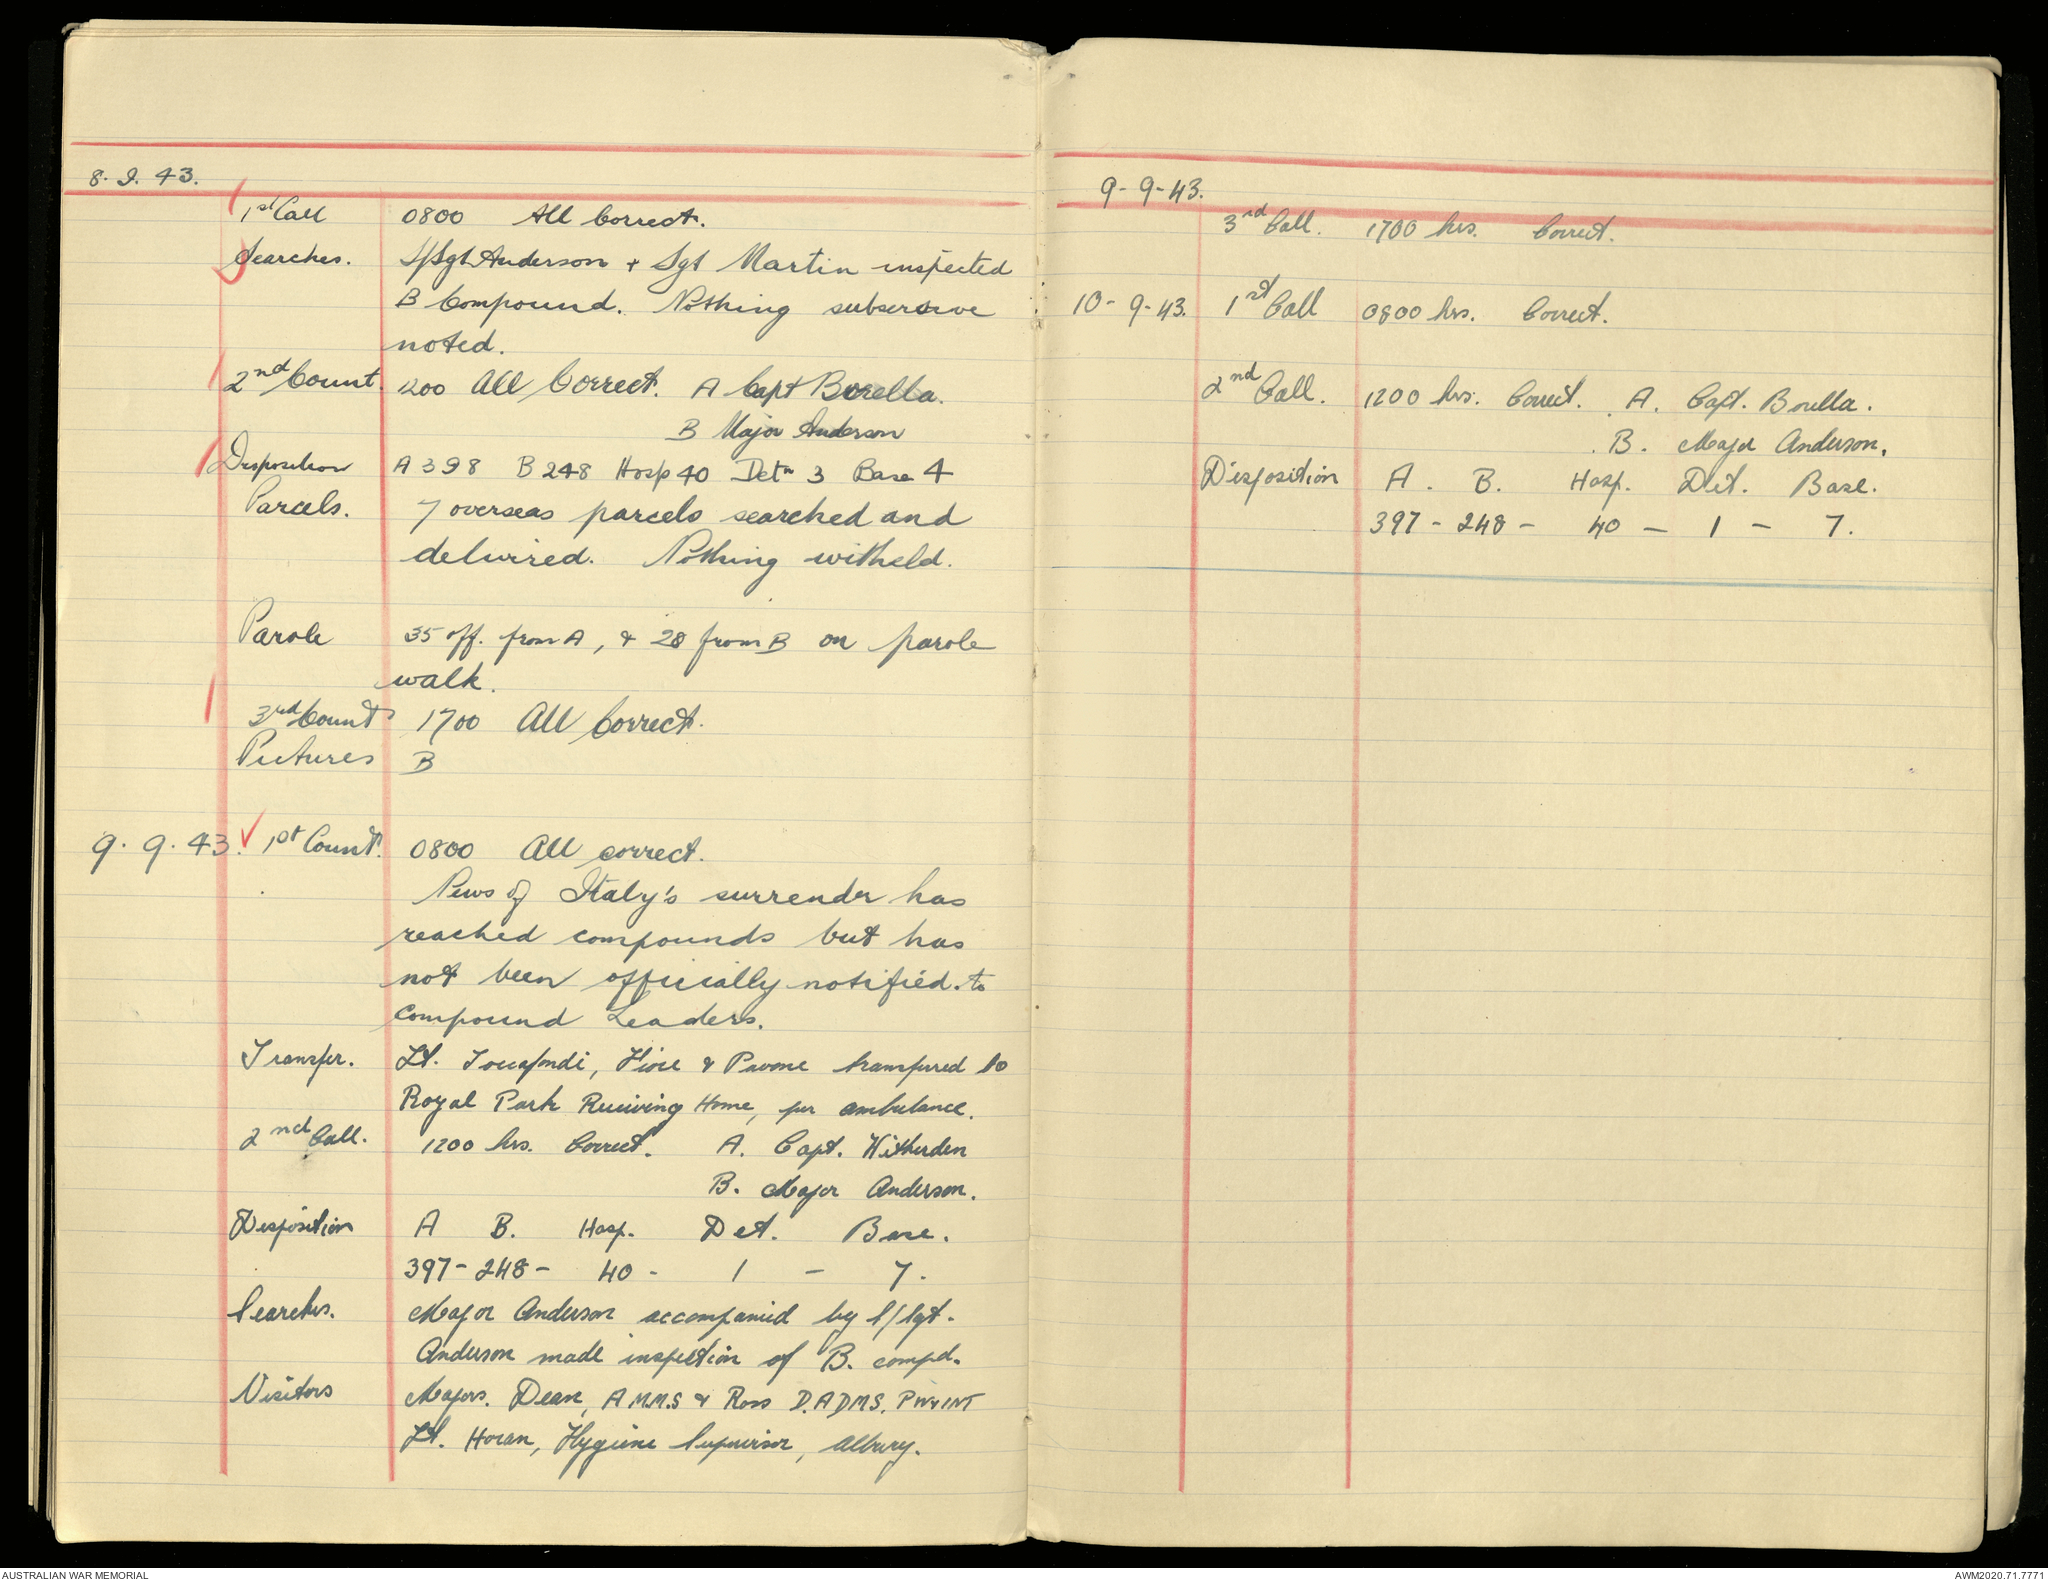 8. 9. 43.
1st Call 0800 All Correct.
Searches. S/Sgt Anderson + Sgt Martin inspected
B Compound. Nothing subsersive
noted.
2nd Count. 1200 All Correct. A Capt Borella.
B Major Anderson
Disposition A 398 B 248 Hosp 40 Detn 3 Base 4
Parcels. 7 overseas parcels searched and
delivired. Nothing witheld.
Parole 35 off. from A, & 28 from B on parole
walk.
3rd Count 1700 All Correct.
Pictures B
9. 9. 43. 1st Count. 0800 All correct.
News of Italy's surrender has
reached compounds but has
not been officially notified. to
Compound Leaders.
Transfer. Lt. Toccafondi, Fiore & Pavone transferred to
Royal Park Receiving Home, per ambulance.
2nd Call. 1200 hrs. Correct. A. Capt. Witherden
B. Major Anderson.
Disposition A B. Hosp. Det. Base.
397 - 248 - 40 - 1 - 7.
Searches. Major Anderson accompanied by S/Sgt.
Anderson made inspection of B. compd.
Visitors Majors. Dean, A.M.M.S & Ross D.A.D.M.S. PW & INT
Lt. Horan, Hygiene Supervisor, Albury.
9- 9- 43.
3rd Call. 1700 hrs. Correct.
10- 9- 43. 1st Call 0800 hrs. Correct.
2nd Call. 1200 hrs. Correct. A. Capt. Borella.
B. Major Anderson.
Disposition A. B. Hosp. Det. Base.
397 - 248 - 40 - 1 - 7.
AUSTRALIAN WAR MEMORIAL
AWM2020.71.7771